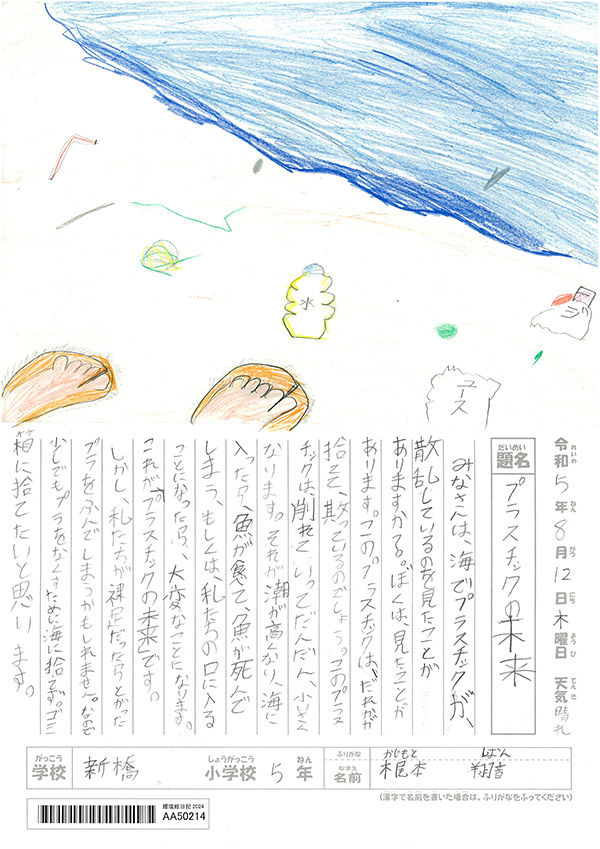 水
ユース
令和5年8月12日木曜日 天気 晴れ
れいわ ねん がつ にち ようび てんき
だいめい
題名 プラスチックの未来
みなさんは、海でプラスチックが、
散乱しているのを見たことが
ありますかる。ぼくは、見たことが
あります。このプラスチックは、だれかが
捨てて、散っているのでしょう。このプラス
チックは、削れていってだんだん、小さく
なります。それが潮が高くなり、海に
入ったら、魚が食べて、魚が死んで
しまう、もしくは、私たちの口に入る
ことになったら、大変なことになります。
これが、「プラスチックの未来」です。
しかし、私たちが裸足だったらとがった
プラをふんでしまうかもしれません。なので
少しでもプラをなくすために海に捨てず。ゴミ
箱に捨てたいと思います。
がっこう しょうがっこう ねん ふりがな かじもと しおん
学校 新橋 小学校 5年 なまえ 名前 梶本 翔音
(漢字で名前を書いた場合は、ふりがなをふってください)
環境絵日記2024
AA50214